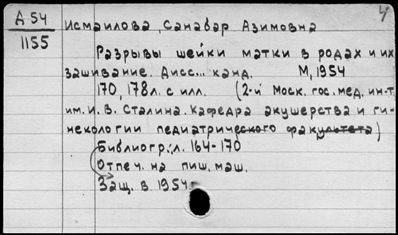 Д 54
1155
Исмаилова, Санавар Азимовна
Разрывы шейки матки в родах и их
зашивание. Дисс... канд. М, 1954
170, 178 л. с илл. (2-й Моск. гос. мед. ин-т
им. И. В. Сталина. Кафедра акушерства и ги-
некологии педиатрического факультета)
Библиогр.: л. 164-170
Отпеч. на пиш. маш.
Защ. в 1954 г.